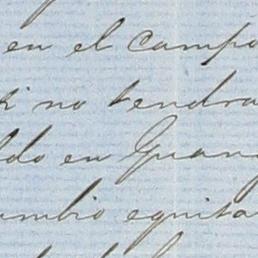 en el campo
no tendra
ldo en Guan
umbio equita